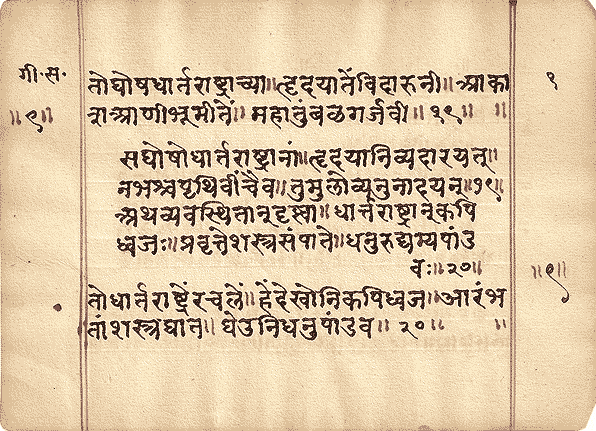 गी॰स॰
तोघोषधार्तराष्ट्राच्या॥हृदयातेंविदारुनी॥आका
१
॥९॥
वाआणीभूमीतें॥महातुंबळगर्जवी॥१९॥ ॥
सघोषोधार्तराष्ट्रानां॥हृदयानिव्यदारयत्॥
नभश्चपृथिवींचैव॥तुमुलोव्यनुनादयन्॥१९॥
अथव्यवस्थितान्दृष्ट्वा॥धार्तराष्ट्रान्कपि
ध्वजः॥प्रवृत्तेशस्त्रसंपाते॥धनुरुद्यम्यपांड
वः॥२०॥
॥९॥
तोधार्तराष्ट्रेंरचलें॥हेंदेखोनिकपिध्वज॥आरंभ
तांशस्त्रघात॥घेउनिधनुपांडव॥२०॥ ॥